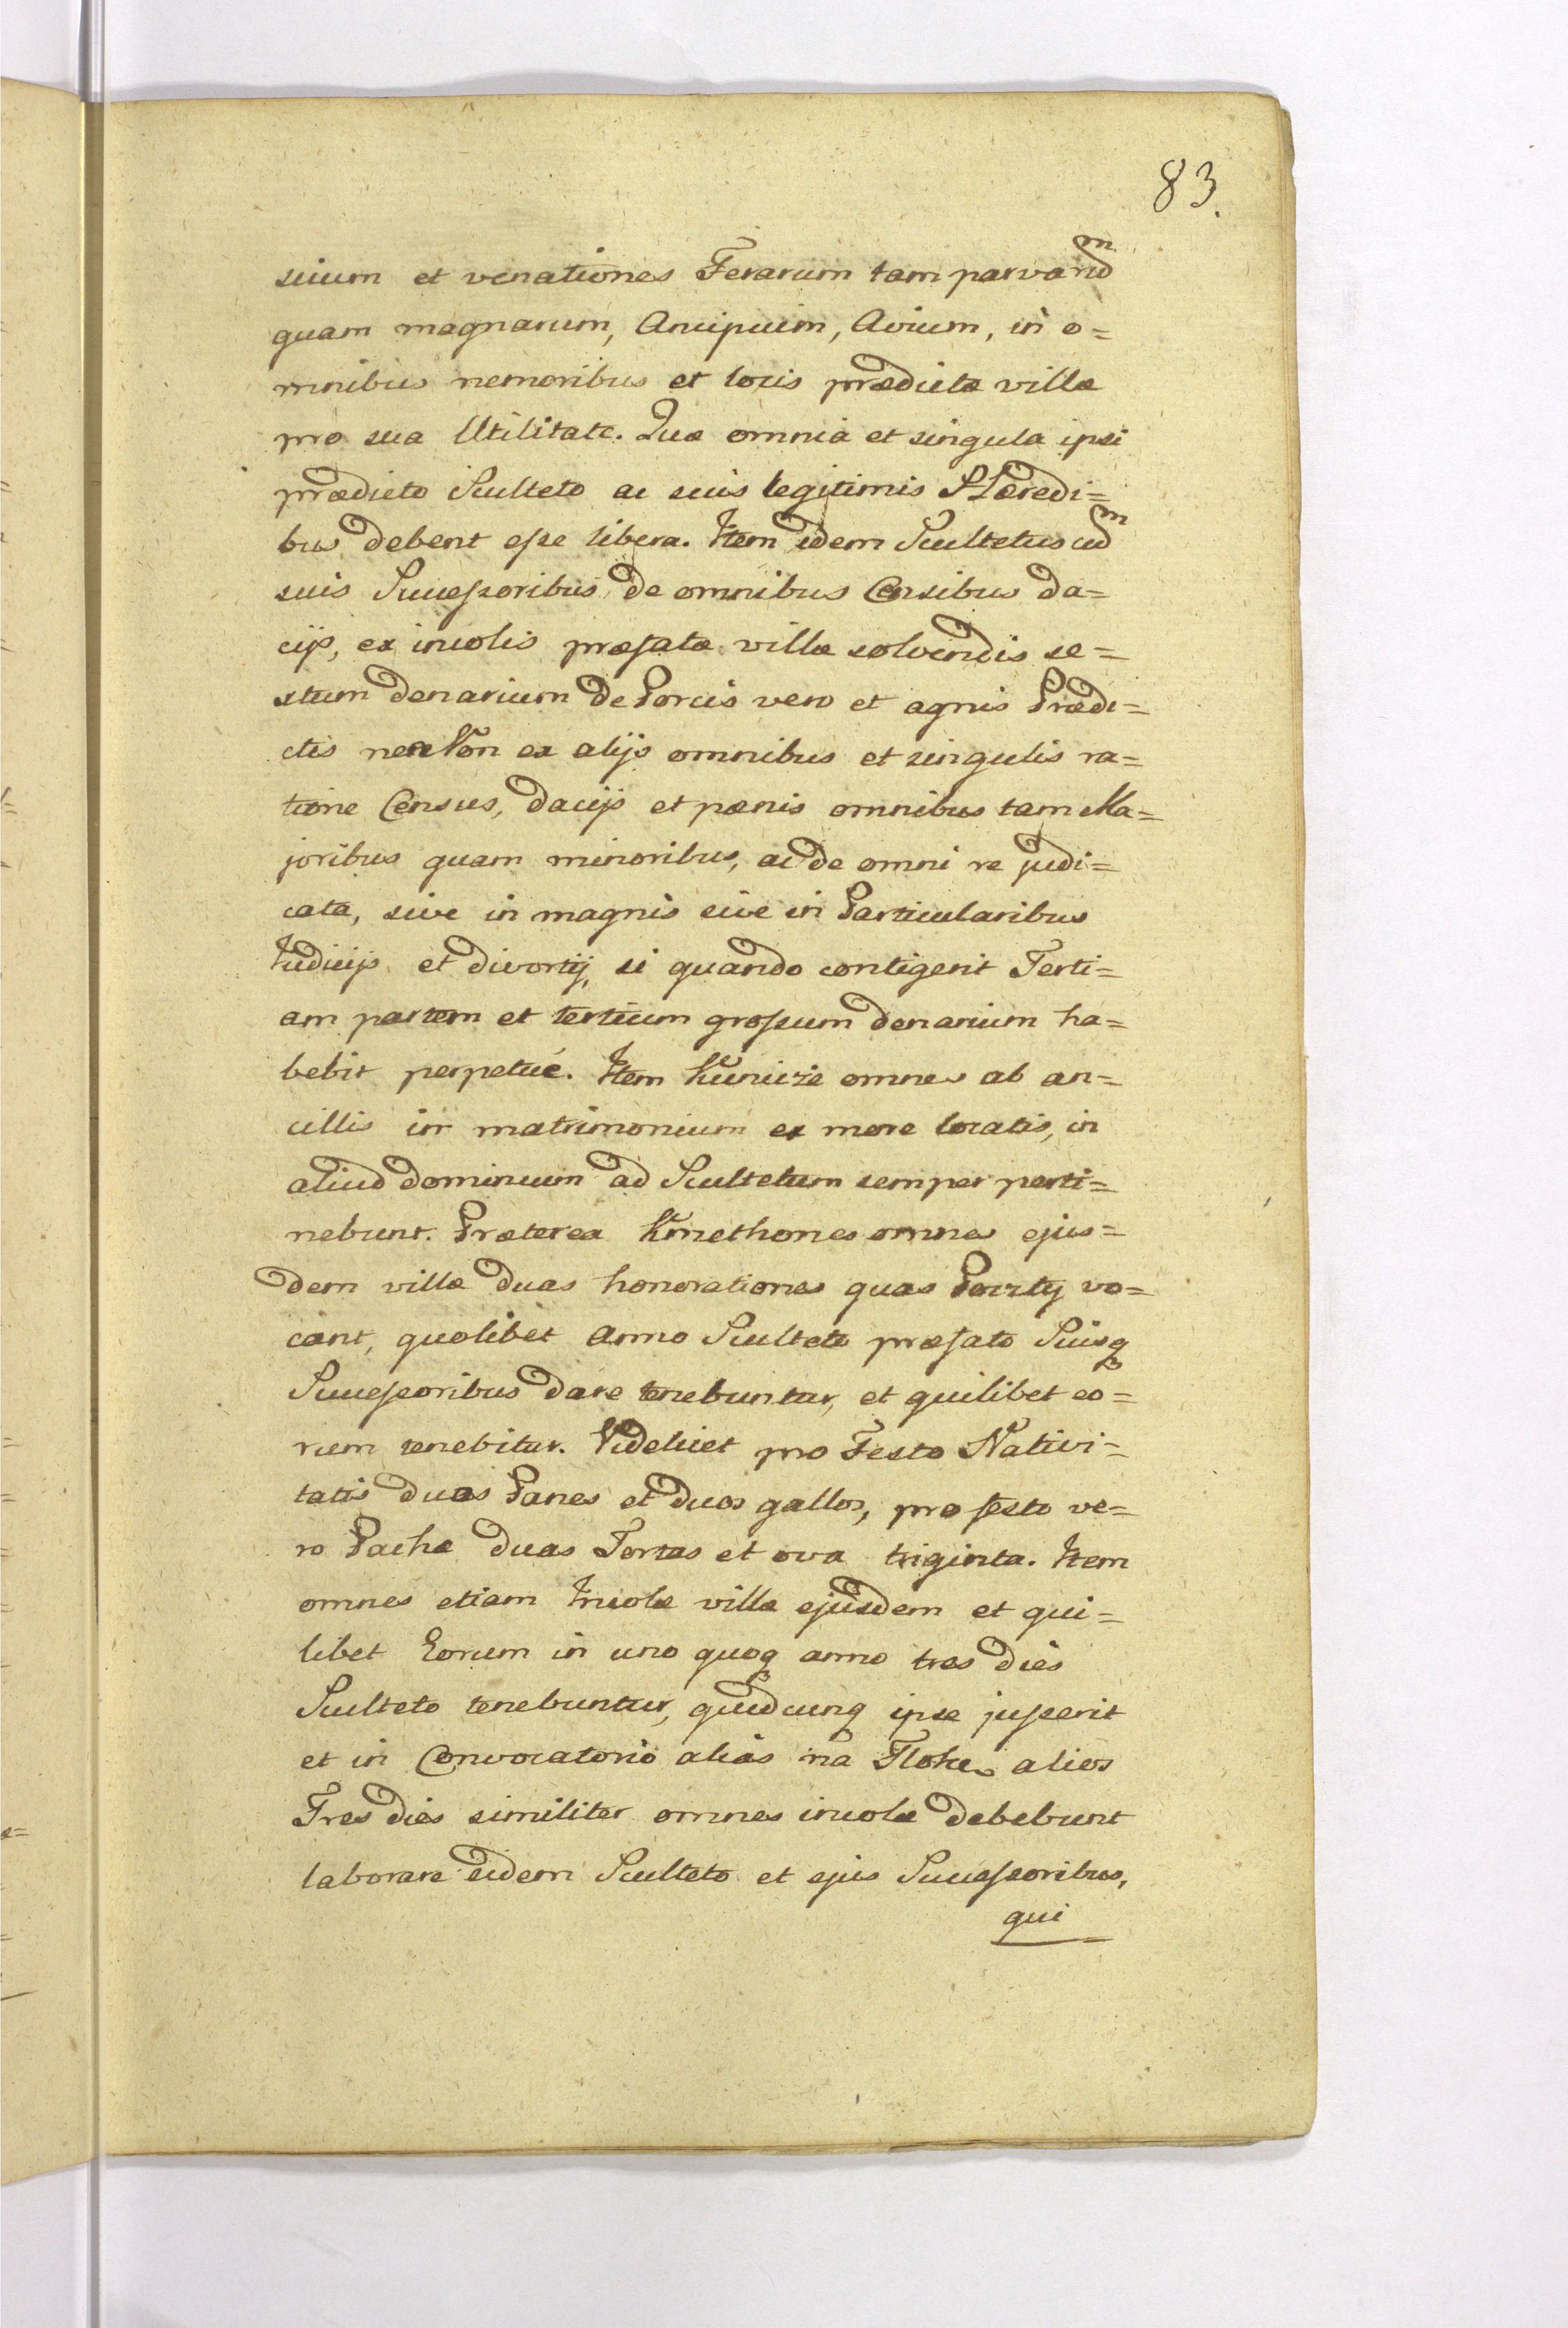 83.
scium et venationes Ferarum tam parvarũ m
quam magnarum, Ancipuim, Avium, in o=
mnibus nemoribus et locis prædictæ villæ
pro sua Utilitate. Quæ omnia et singula ipsi
prædicto Sculteto ac suis legitimis Hæredi=
bus debent esse libera. Item idem Scultetus cũ m
suis Successoribus de omnibus Censibus da=
cijs, ex incolis præfatæ villæ solvendis se=
xtum denarium de Porcis vero et agnis Prædi=
ctis nec Non ex alijs omnibus et singulis ra=
tione Census, dacijs et pænis omnibus tam Ma=
joribus quam minoribus, ac de omni re judi=
cata, sive in magnis sive in Particularibus
Iudicijs et divortij, si quando contigerit Terti=
am partem et tertium grossum denarium ha=
bebit perpetué. Item Kunicze omnes ab an=
cillis in matrimonium ex more locatis, in
aliud dominium ad Scultetum semper perti=
nebunt. Præterea Kmethones omnes ejus=
dem villæ duas honorationes quas Poczty vo=
cant, quolibet Anno Sculteto præfato Suisq
Successoribus dare tenebuntur, et quilibet eo=
rum tenebitur. Videlicet pro Festo Nativi=
tatis duos Panes et duos gallos, pro festo ve=
ro Pachæ duas Tortas et ova triginta. Item
omnes etiam Incolæ villæ ejusdem et qui=
libet Eorum in uno quoq anno tres dies
Sculteto tenebuntur, quidcunq ipse jusserit
et in Convocatorio alias na Tlokę alios
Tres dies similiter omnes incolæ debebunt
laborare eidem Sculteto et ejus Successoribus,
qui